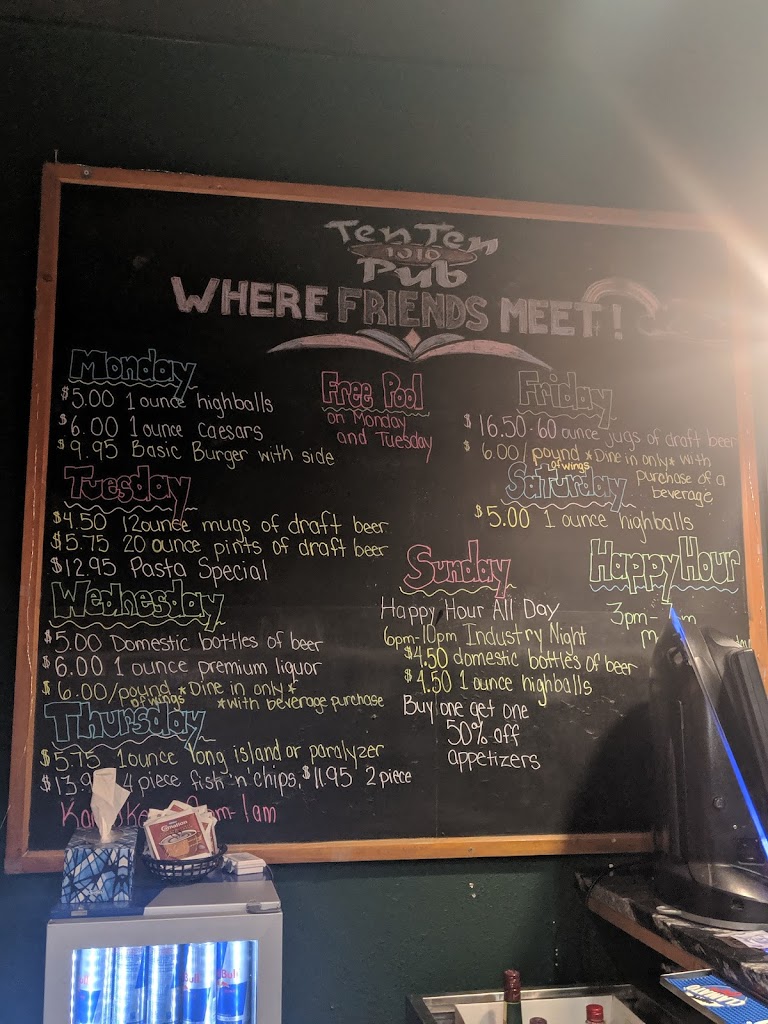 Ten Ten
1010
Pub
WHERE FRIENDS MEET!
Monday
$5.00 1 ounce highballs
$6.00 1 ounce caesars
$9.95 Basic Burger with side
Free Pool
on Monday
and Tuesday
Tuesday
$4.50 12ounce mugs of draft beer
$5.75 20 ounce pints of draft beer
$12.95 Pasta Special
Wednesday
$5.00 Domestic bottles of beer
$6.00 1 ounce premium liquor
$6.00/pound *Dine in only*
of wings *with beverage purchase
Thursday
$5.75 1ounce long island or paralyzer
4 piece fish 'n' chips, $11.95 2 piece
1am
Friday
$16.50-60 ounce jugs of draft beer
$6.00/pound *Dine in only* with
of wings purchase of a
beverage
Saturday
$5.00 1 ounce highballs
Sunday
Happy Hour All Day
6pm-10pm Industry Night
$4.50 domestic bottles of beer
$4.50 1 ounce highballs
Buy one get one
50% off
appetizers
Happy Hour
3pm-
Carnation
Bull
Bull